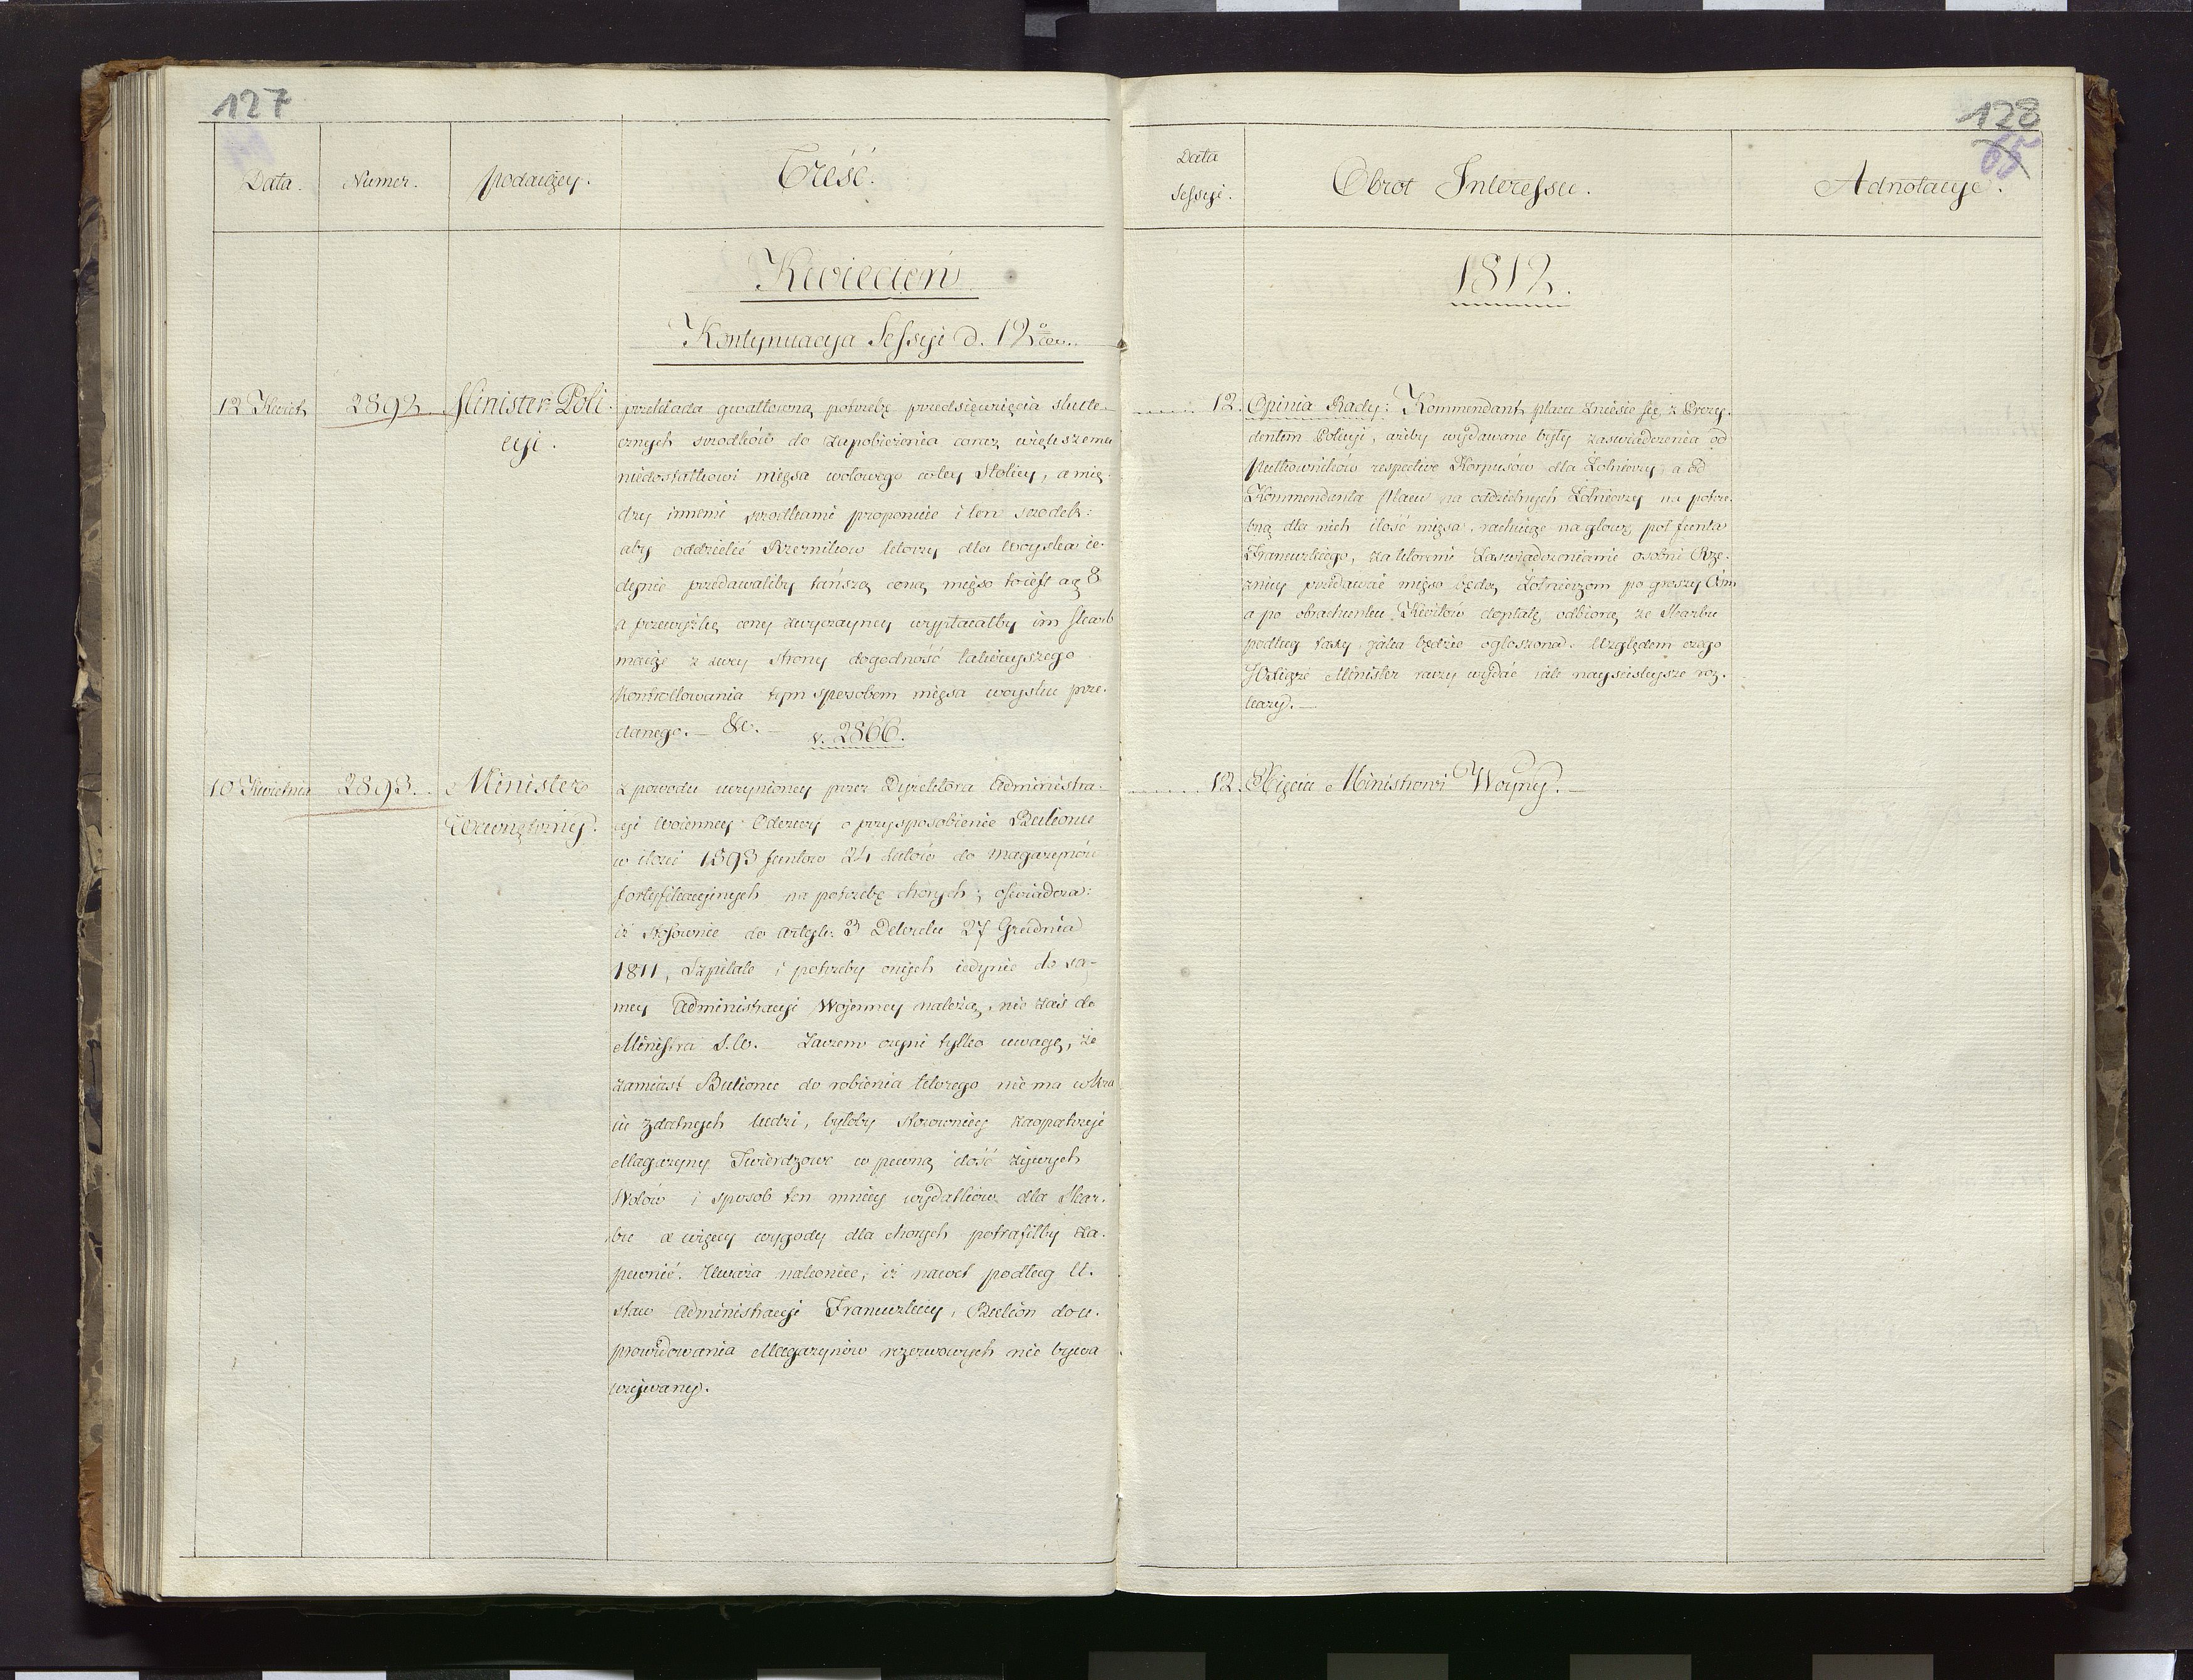 127
Data.
Numer.
podaiący.
Treść.
Kwiecień
Kontynuacya Sessyi d. 12
12 Kwiet.
2892
Minister Poli-
cyi.
przekłada gwałtowną potrzebę przedsięwzięcia skute-
cznych srzodków do zapobieżenia coraz większemu
niedostatkowi mięsa wołowego w tey Stolicy, a mię-
dzy innemi srzodkami proponuie i ten srodek:
aby oddzielić Rzeznikow ktorzy dla Woyska ie-
dynie przedawaliby tańszą ceną mięso to iest a g 8
a przewyżkę ceny zwyczayney wypłacałby im skarb
maiąc z swey strony dogodność łatwieyszego
kontrollowania tym sposobem mięsa woysku prze-
danego. — &c. — v. 2866.
10 Kwietnia
2893.
Minister
Wewnętrzny.
z powodu uczynioney przez Dyrektora Administra-
cyi Woienney Odezwy o przysposobienie Bulionu
w ilości 1593 funtow 24 łutów do magazynów
fortyfikacyinych na potrzebę chorych; oświadcza:
iż stosownie do Artyk: 3 Dekretu 27 Grudnia
1811, Szpitale i potrzeby onych iedynie do sa-
mey Administracyi Wojenney należą, nie zaś do
Ministra S.W. — Zaczem czyni tylko uwagę, że
zamiast Bulionu do robienia ktorego nie ma w Kra-
iu zdatnych ludzi, byłoby stosowniey zaopatrzyć
Magazyny Twierdzowe w pewną ilość żywych
Wołów i sposob ten mniey wydatków dla Skar-
bu a więcey wygody dla chorych potrafiłby za-
pewnić. Uważa nakoniec, iż nawet podług U-
staw Administracyi Francuzkiey, Bulion do u-
prowidowania Magazynów rezerwowych nie bywa
używany.
128
65
Data
Sessyi.
Obrot Interessu.
Adnotacye.
1812.
12. Opinia Rady: Kommendant placu zniesie się z Prezy-
dentem Policyi, ażeby wydawane były zaswiadczenia od
Pułkowników respective Korpusów dla Żołnierzy, a od
Kommendanta Placu na oddzielnych Żołnierzy na potrze-
bną dla nich ilość mięsa, rachuiąc na głowę poł funta
Francuzkiego, za ktoremi Zaswiadczeniami osobni Rze-
znicy przedawać mięso będą Żołnierzom po groszy Ośm
a po obrachunku Kwitów dopłatę odbiorą ze Skarbu
podług taxy, jaka będzie ogłoszona. Względem czego
JOXiąże Minister raczy wydać iak nayscisleysze roz-
kazy. —
12. Xięciu Ministrowi Woyny. —